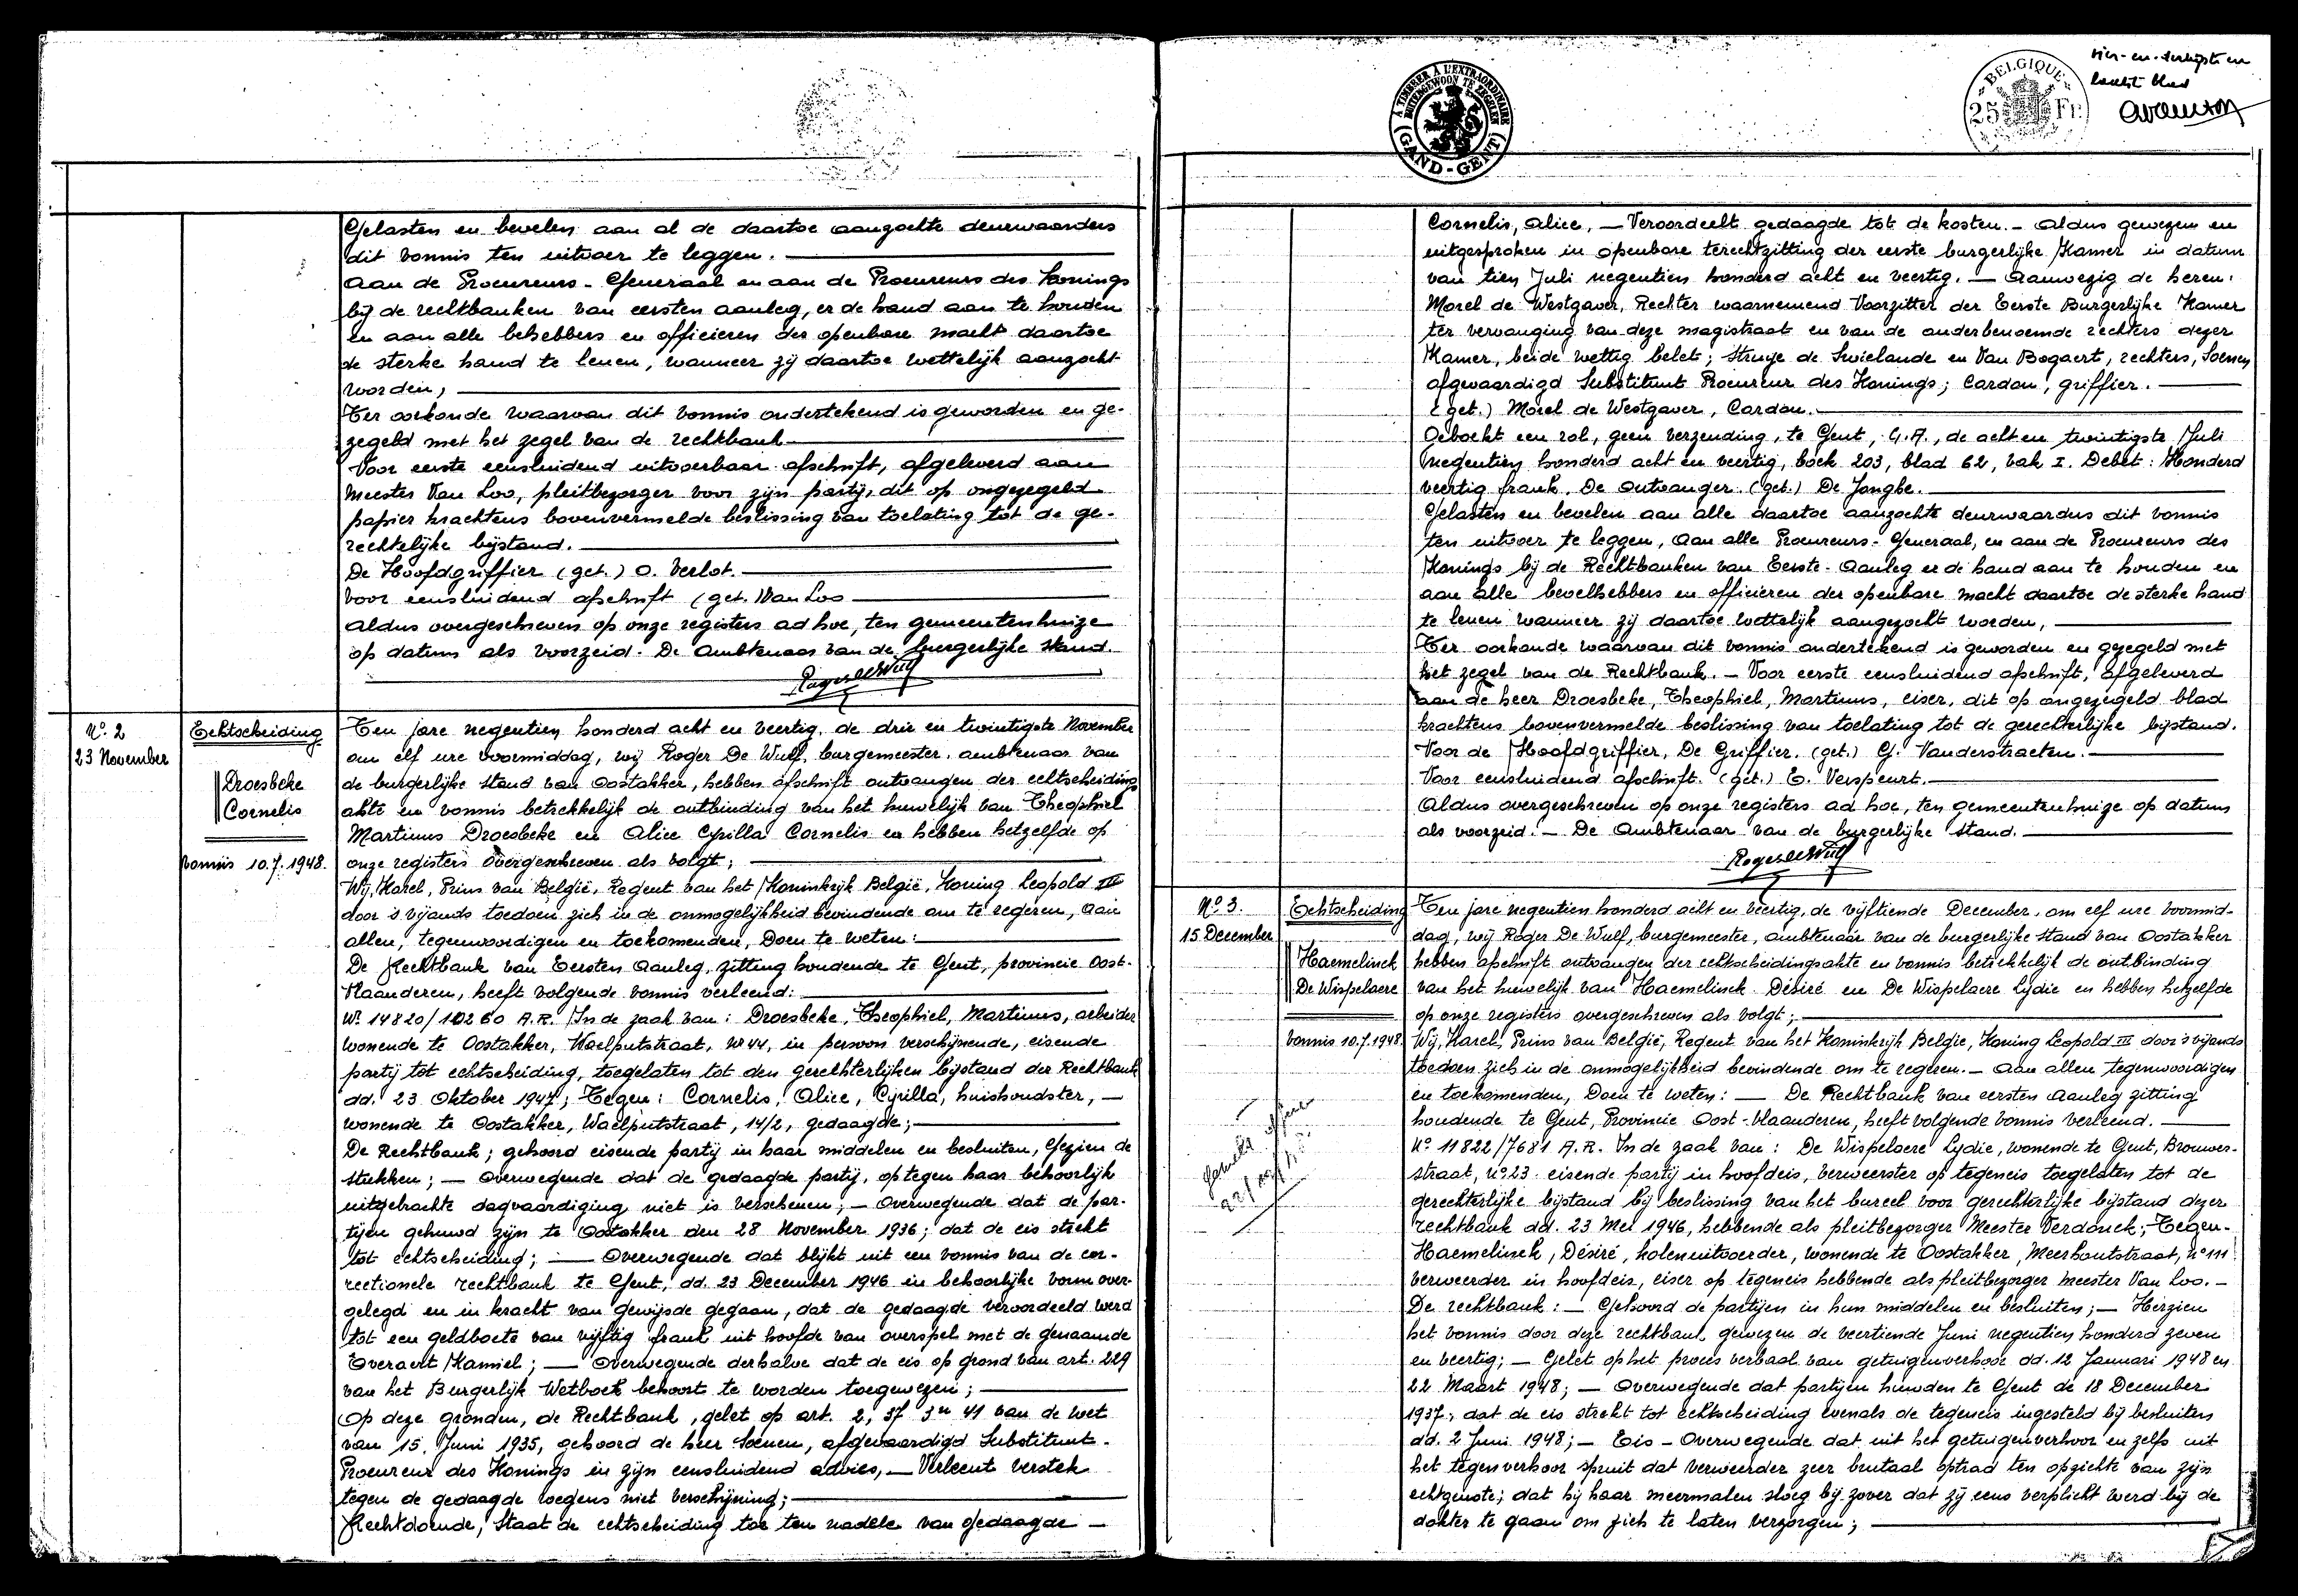 Gelasten en bevelen aan al de daartoe aangzochte deurwaarders
dit vonnis ten uitvoer te leggen.
Aan de Procureurs-Generaal en aan de Procureurs des Konings
bij de rechtbanken van eersten aanleg, er de hand aan te houden
en aan alle behebbers en officieren der openbare macht daartoe
de sterke hand te lenen, wanneer zij daartoe wettelijk aangzocht
worden;
Ter oorkonde waarvan dit vonnis ondertekend is geworden en ge-
zegeld met het zegel van de rechtbank
Voor eerste eensluidend uitvoerbaar afschrift, afgeleverd aan
Meester Van Loo, pleitbezorger voor zijn partij, dit op ongezegeld
papier krachtens bovenvermelde beslissing van toelating tot de ge-
rechtelijke bijstand.
De Hoofdgriffier (get.) O. Verlot.
Voor eensluidend afschrift (get.) Van Loo
Aldus overgeschreven op onze registers ad hoc, ten gemeentenhuize
op datum als voorzeid. De Ambtenaar van de burgerlijke stand.
Roger De Wulf
No. 2
23 November
Echtscheiding
Droesbeke
Cornelis
Vonnis 10.7.1948.
Ten jare negentien honderd acht en veertig, de drie en twintigste November
om elf ure voormiddag, wij Roger De Wulf, burgemeester, ambtenaar van
de burgerlijke stand van Oostakker, hebben afschrift ontvangen der echtscheidings
akte en vonnis betrekkelijk de ontbinding van het huwelijk van Theophiel
Martinus Droesbeke en Alice Cyrilla Cornelis en hebben hetzelfde op
onze registers overgeschreven als volgt;
Wij, Karel, Prins van België, Regent van het Koninkrijk België, Koning Leopold III
door 's vijands toedoen zich in de onmogelijkheid bevindende om te regeren, Aan
allen, tegenwoordigen en toekomenden, Doen te weten:
De Rechtbank van Eersten Aanleg, zitting houdende te Gent, provincie Oost-
Vlaanderen, heeft volgende vonnis verleend:
No 14820/10260 A.R. In de zaak van: Droesbeke, Theophiel, Martinus, arbeider
wonende te Oostakker, Waelputstraat, No 44, in persoon verschijnende, eisende
partij tot echtscheiding, toegelaten tot den gerechterlijken bijstand der Rechtbank
dd. 23 Oktober 1947; Tegen: Cornelis, Alice, Cyrilla, huishoudster,
wonende te Oostakker, Waelputstraat, 14/2, gedaagde;
De Rechtbank; gehoord eisende partij in haar middelen en besluiten, Gezien de
stukken; — Overwegende dat de gedaagde partij, op tegen haar behoorlijk
uitgebrachte dagvaardiging niet is verschenen; — Overwegende dat de par-
tijen gehuwd zijn te Oostakker den 28 November 1936; dat de eis strekt
tot echtscheiding; — Overwegende dat blijkt uit een vonnis van de cor-
rectionele rechtbank te Gent, dd. 23 December 1946 in behoorlijke vorm over-
gelegd en in kracht van gewijsde gegaan, dat de gedaagde veroordeeld werd
tot een geldboete van vijftig frank uit hoofde van overspel met de genaamde
Everaert Kamiel; — Overwegende derhalve dat de eis op grond van art. 229
van het Burgerlijk Wetboek behoort te worden toegewezen;
Op deze gronden, de Rechtbank, gelet op art. 2, 37 en 41 van de wet
van 15 Juni 1935, gehoord de heer Soenen, afgevaardigd Substituut-
Procureur des Konings in zijn eensluidend advies, — Verleent verstek
tegen de gedaagde wegens niet verschijning;
Rechtdoende, Staat de echtscheiding toe ten nadele van gedaagde —
A TIMBRER A L'EXTRAORDINAIRE
BUITENGEWOON TE ZEGELEN
GAND-GENT
BELGIQUE
25 Fr.
vier-en-dertigste en
laatste blad
Cornelis, Alice, — Veroordeelt gedaagde tot de kosten. — Aldus gewezen en
uitgesproken in openbare terechtzitting der eerste burgerlijke Kamer in datum
van tien Juli negentien honderd acht en veertig. — Aanwezig de heren:
Morel de Westgaver, Rechter waarnemend Voorzitter der Eerste Burgerlijke Kamer
ter vervanging van deze magistraat en van de anderbenoemde rechters dezer
Kamer, beide wettig belet; Struye de Swielande en Van Bogaert, rechters, Soenen
afgevaardigd Substituut Procureur des Konings; Cardon, griffier.
(get.) Morel de Westgaver, Cardon.
Geboekt een rol, geen verzending, te Gent, G.A., de acht en twintigste Juli
negentien honderd acht en veertig, boek 203, blad 62, vak I. Debet: Honderd
veertig frank. De Ontvanger (get.) De Jonghe.
Gelasten en bevelen aan alle daartoe aanzochte deurwaarders dit vonnis
ten uitvoer te leggen, Aan alle Procureurs-Generaal, en aan de Procureurs des
Konings bij de Rechtbanken van Eerste-Aanleg er de hand aan te houden en
aan alle bevelhebbers en officieren der openbare macht daartoe de sterke hand
te lenen wanneer zij daartoe wettelijk aangezocht worden,
Ter oorkonde waarvan dit vonnis ondertekend is geworden en gezegeld met
het zegel van de Rechtbank. — Voor eerste eensluidend afschrift, afgeleverd
aan de heer Droesbeke, Theophiel, Martinus, eiser, dit op ongezegeld blad
krachtens bovenvermelde beslissing van toelating tot de gerechterlijke bijstand.
Voor de Hoofdgriffier, De Griffier, (get.) G. Vanderstraeten.
Voor eensluidend afschrift. (get.) E. Verspeurt.
Aldus overgeschreven op onze registers ad hoc, ten gemeentenhuize op datum
als voorzeid. — De Ambtenaar van de burgerlijke stand.
Roger De Wulf
No. 3.
15 December
Echtscheiding
Haemelinck
De Wispelaere
Vonnis 10.7.1948.
Ten jare negentien honderd acht en veertig, de vijftiende December, om elf ure voormid-
dag, wij Roger De Wulf, burgemeester, ambtenaar van de burgerlijke stand van Oostakker
hebben afschrift ontvangen der echtscheidingsakte en vonnis betrekkelijk de ontbinding
van het huwelijk van Haemelinck Désiré en De Wispelaere Lydie en hebben hetzelfde
op onze registers overgeschreven als volgt;
Wij, Karel, Prins van België, Regent van het Koninkrijk Belgie, Koning Leopold III door 's vijands
toedoen zich in de onmogelijkheid bevindende om te regeren. — Aan allen tegenwoordigen
en toekomenden, Doen te weten: — De Rechtbank van eersten Aanleg zitting
houdende te Gent, Provincie Oost-Vlaanderen, heeft volgende vonnis verleend.
No 11822/7681 A.R. In de zaak van: De Wispelaere Lydie, wonende te Gent, Brouwers-
straat, No 23 eisende partij in hoofdeis, verweerster op tegeneis toegelaten tot de
gerechterlijke bijstand bij beslissing van het bureel voor gerechterlijke bijstand dezer
rechtbank dd. 23 Mei 1946, hebbende als pleitbezorger Meester Verdonck; Tegen-
Haemelinck, Désiré, kolenuitvoerder, wonende te Oostakker, Meerhoutstraat, No 111
verweerder in hoofdeis, eiser op tegeneis hebbende als pleitbezorger meester Van Loo. —
De rechtbank: — Gehoord de partijen in hun middelen en besluiten; — Herzien
het vonnis door deze rechtbank gewezen de veertiende Juni negentien honderd zeven
en veertig; — Gelet op het proces verbaal van getuigenverhoor dd. 12 Januari 1948 en
22 Maart 1948; — Overwegende dat partijen huwden te Gent de 18 December
1937; dat de eis strekt tot echtscheiding evenals de tegeneis ingesteld bij besluiten
dd. 2 Juni 1948; — Eis — Overwegende dat uit het getuigenverhoor en zelfs uit
het tegenverhoor spruit dat verweerder zeer brutaal optrad ten opzichte van zijn
echtgenote; dat hij haar meermalen sloeg bij zover dat zij eens verplicht werd bij de
dokter te gaan om zich te laten verzorgen;